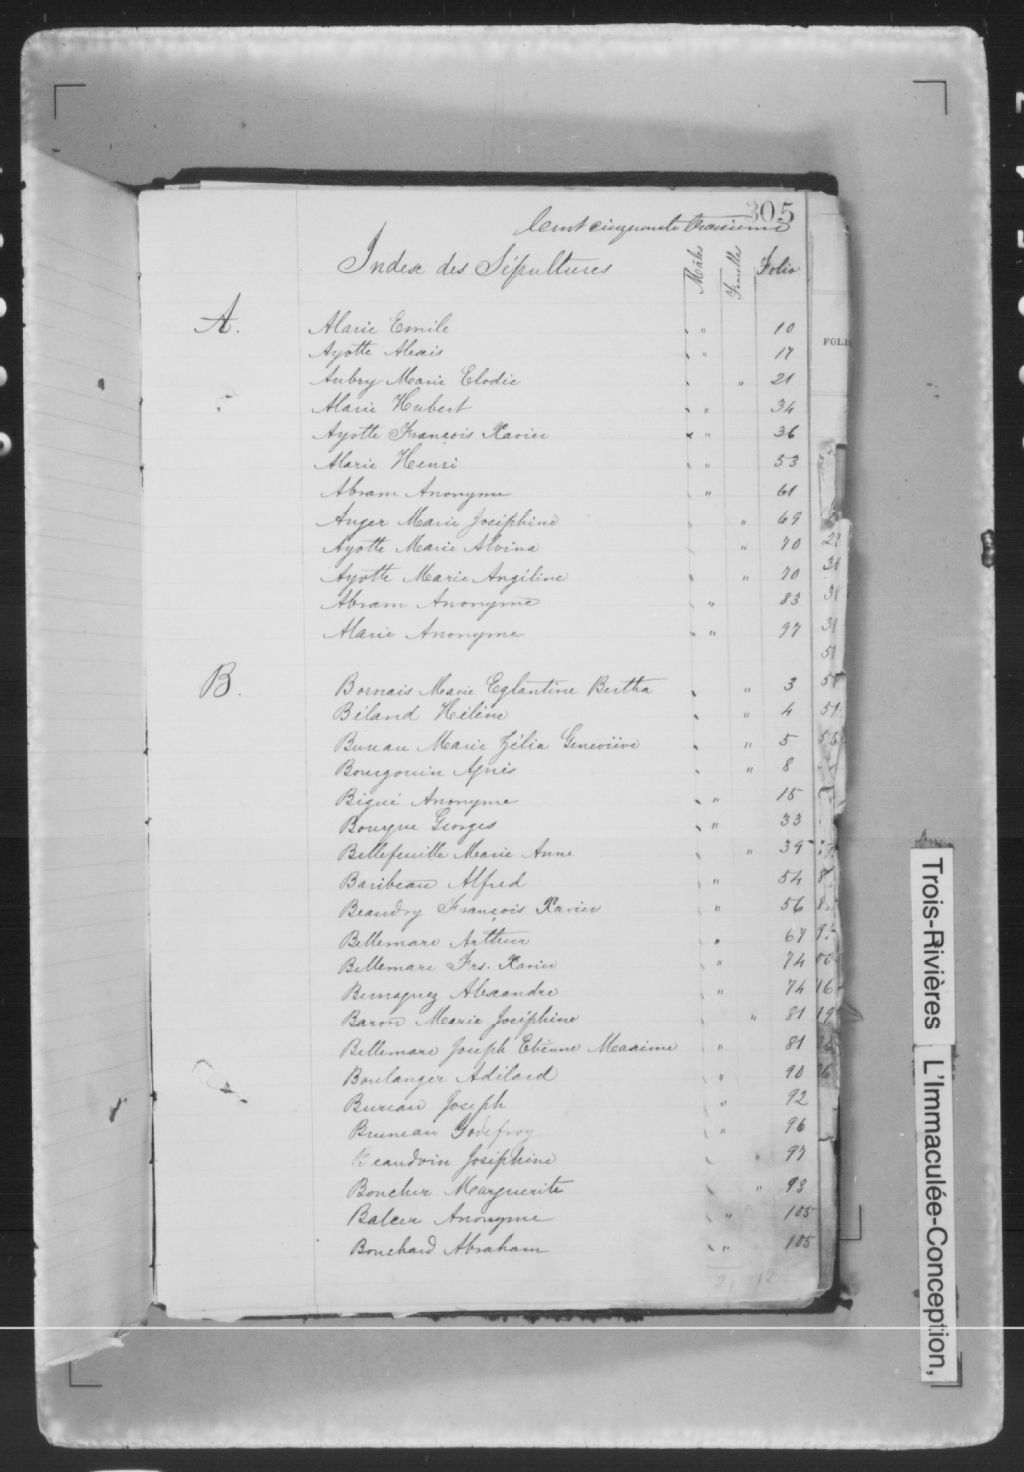 305
Cent cinquante troisième
Index des Sépultures Mâles Femelles Folio
A.
Alarie Emile " 10
Ayotte Alexis " 17
Aubry Marie Elodie " 21
Alarie Hubert " 34
Ayotte François Xavier " 36
Alarie Henri " 53
Abram Anonyme " 61
Anger Marie Joséphine " 69
Ayotte Marie Alvina " 70
Ayotte Marie Angéline " 70
Abram Anonyme " 83
Alarie Anonyme " 97
B.
Bornais Marie Eglantine Bertha " 3
Béland Hélène " 4
Bureau Marie Zélia Geneviève " 5
Bourgouin Agnès " 8
Bigué Anonyme " 15
Georges " 33
Bellefeuille Marie Anne " 39
Baribeau Alfred " 54
Beaudry François Xavier " 56
Bellemare Arthur " 67
Bellemare Frs. Xavier " 74
Alexandre " 74
Baron Marie Joséphine " 81
Bellemare Joseph Etienne Maxime " 81
Boulanger Adélard " 90
Bureau Joseph " 92
Bruneau Godefroy " 96
Beaudoin Joséphine " 97
Boucher Marguerite " 98
Balcer Anonyme " 105
Bouchard Abraham " 105
21 12
FOLIO
Trois-Rivières L'Immaculée-Conception,